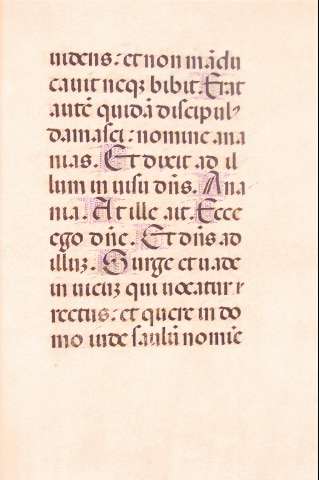 uidens: et non mādu
cauit neqꝫ bibit. Erat
autē quidā discipulꝰ
damasci: nomine ana
nias. Et dixit ad il
lum in uisu dn̄s. Ana
nia. At ille ait. Ecce
ego dn̄e. Et dn̄s ad
illuꝫ. Surge et uade
in uicuꝫ qui uocatur r
rectus: et quere in do
mo iude saulū nomīe